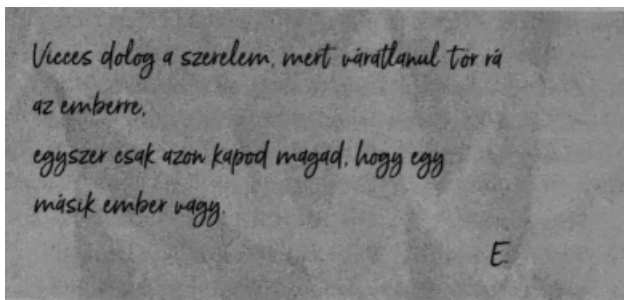 Vicces dolog a szerelem, mert váratlanul tör rá
az emberre,
egyszer csak azon kapod magad, hogy egy
másik ember vagy.
E.